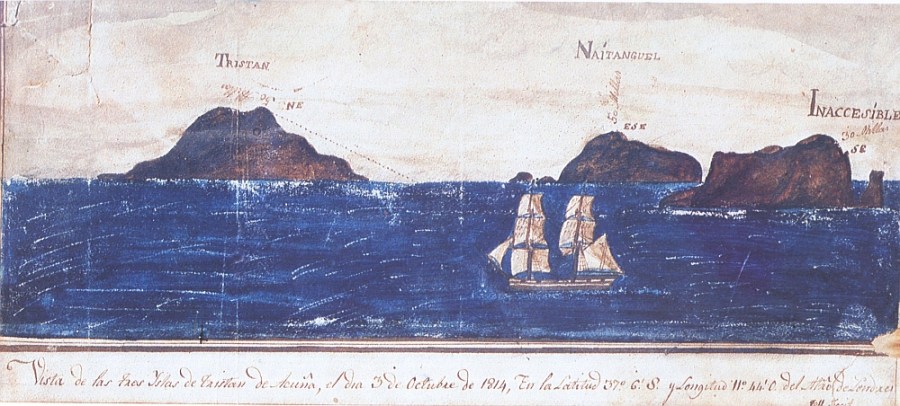 TRISTAN
NE
NAÍTANGUEL
30 Millas
ESE
INACCESÍBLE
30 Millas
SE
Vista de las tres Yslas de tristan de Acuña, el dia 3 de Octubre de 1814, En la Latitud 37° 6' S. y Longitud 11° 44' O. del Mno. de Londres